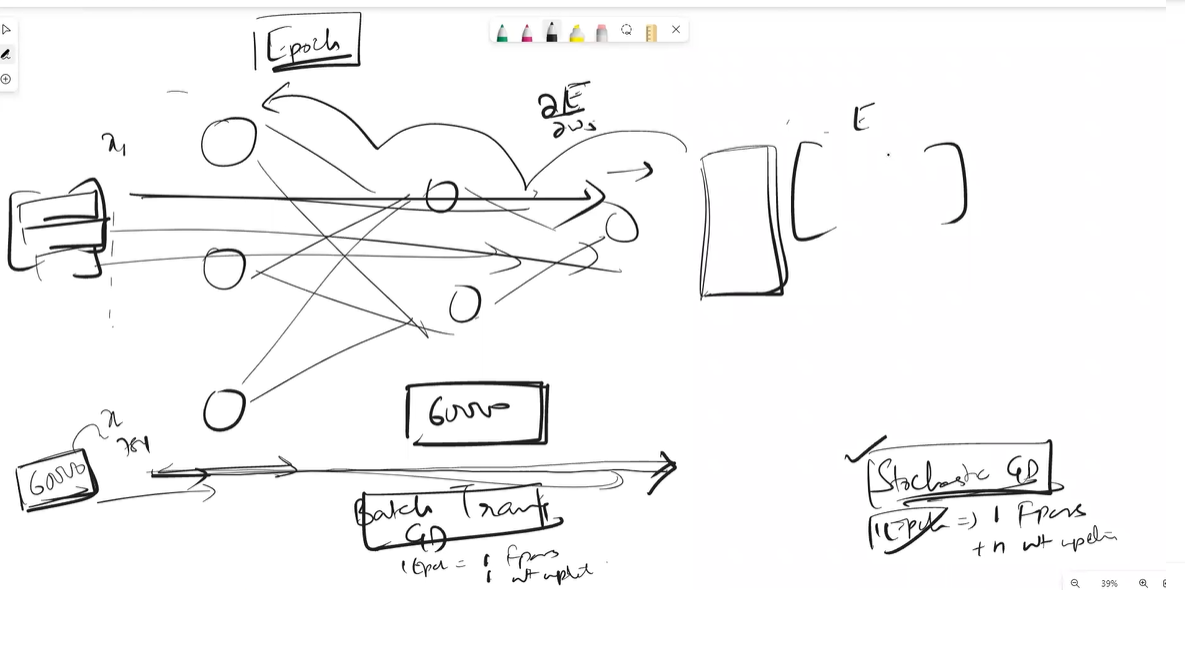 Epoch
∂E
∂ws
E
x1
60000
x
784
60000
Batch Train
GD
1 Epo = 1 Fpass
1 wt updt
Stochastic GD
1 Epoch => 1 Fpass
+ n wt updtn
39%